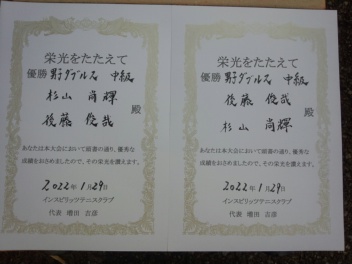 栄光をたたえて
優勝 男子ダブルス 中級
杉山 尚輝
後藤 俊哉
殿
あなたは本大会において頭書の通り、優秀な
成績をおさめましたので、その栄光を讃えます。
2022年 1月29日
インスピリッツテニスクラブ
代表 増田 吉彦
栄光をたたえて
優勝 男子ダブルス 中級
後藤 俊哉
杉山 尚輝
殿
あなたは本大会において頭書の通り、優秀な
成績をおさめましたので、その栄光を讃えます。
2022年 1月29日
インスピリッツテニスクラブ
代表 増田 吉彦